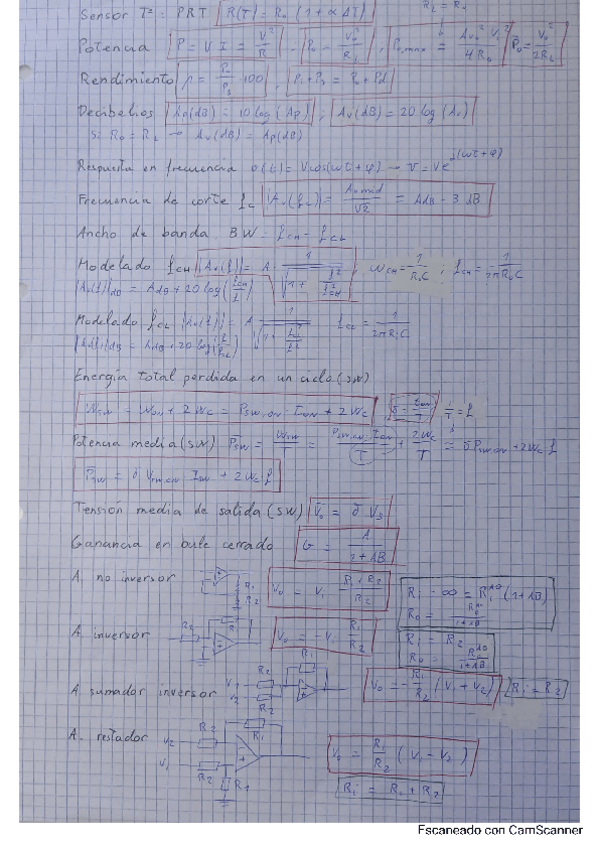 R_L = R_o
Sensor Tª = PRT R(T) = R_o (1 + α ΔT)
Potencia P = V I = V²/R , P_o = V_o²/R_L , P_o,max = A_vo² V_i² / 4 R_o P̄_o = V_o²/2R_L
Rendimiento · 100 , P_i + P_s = P_o + P_d
Decibelios A_p(dB) = 10 log (A_p) , A_v(dB) = 20 log (A_v)
Si R_o = R_L → A_v(dB) = A_p(dB)
Respuesta en frecuencia v(t) = V cos(ωt + φ) → V = V e^j(ωt + φ)
Frecuencia de corte f_c |A_v(f_c)| = A_v mid / √2 = A_dB - 3 dB
Ancho de banda BW = f_CH - f_CL
Modelado f_CH |A_v(f)| = A 1/√(1 + f²/f_CH²) , ω_CH = 1/R_oC ; f_CH = 1/2πR_oC
|A_v(f)|_dB = A_dB + 20 log (f_CH/f)
Modelado f_CL |A_v(f)| = A 1/√(1 + f_CL²/f²) f_CL = 1/2πR_iC
|A_v(f)|_dB = A_dB + 20 log (f/f_CL)
Energía total perdida en un ciclo (SW)
W_SW = W_ON + 2 W_C = P_SW,ON · t_ON + 2 W_C δ = t_ON/T 1/T = f
Potencia media (SW) P̄_SW = W_SW/T = P_SW,ON · t_ON/T + 2W_C/T = δ P_SW,ON + 2W_C f
P̄_SW = δ V_SW,ON · I_SW + 2 W_C f
Tensión media de salida (SW) V̄_o = δ V_s
Ganancia en bucle cerrado G = A/1 + AB
A. no inversor R_1 R_2 V_o = V_i R_1 + R_2 / R_2 R_i = ∞ = R_i^AO (1 + AB)
R_o = R_o^AO / 1 + AB
A. inversor R_2 R_1 V_o = - V_i R_1/R_2 R_i = R_2
R_o = R_o^AO / 1 + AB
A. sumador inversor V_1 V_2 R_2 R_2 R_1 V_o = - R_1/R_2 (V_1 + V_2) R_i = R_2
A. restador V_2 V_1 R_2 R_2 R_1 R_1 V_o = R_1/R_2 (V_1 - V_2)
R_i = R_1 + R_2
Escaneado con CamScanner